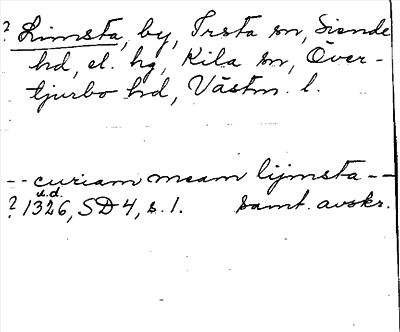 ? Limsta, by, Irsta sn, Siende
hd, el. hg, Kila sn, Över-
tjurbo hd, Västm. l.
-- curiam meam lijmsta --
u.d.
? 1326, SD 4, s. 1. Samt. avskr.